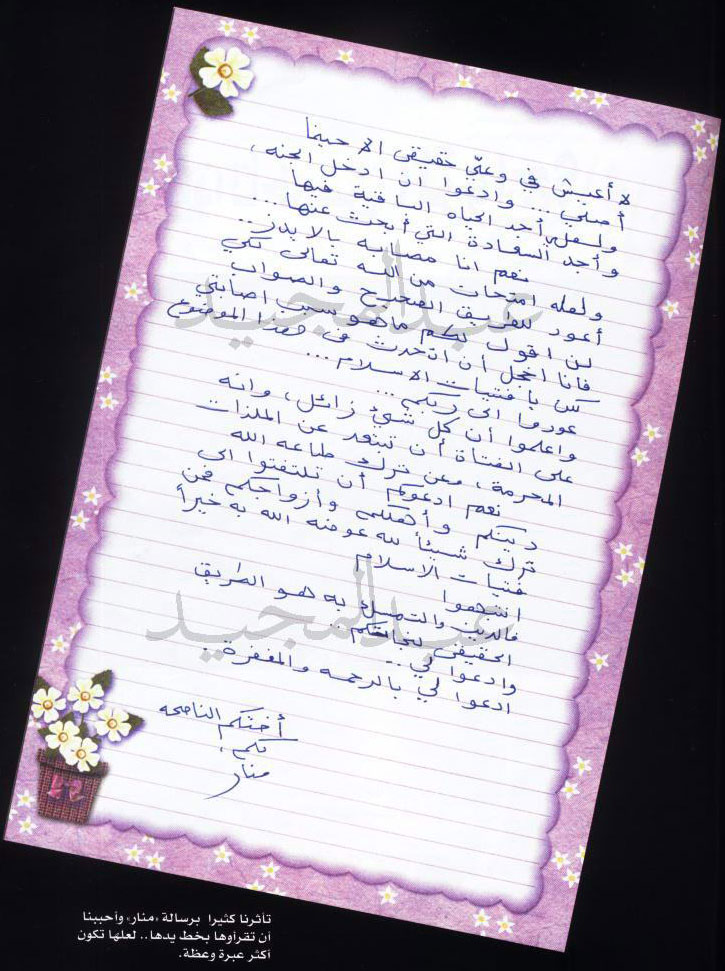 لا أعيش في وعيّ حقيقي الا حينما
أصلي... وادعوا ان ادخل الجنه،
ولعلي أجد الحياه الباقية فيها
وأجد السعادة التي أبحث عنها...
نعم انا مصابه بالايدز..
ولعله امتحان من الله تعالى لكي
أعود للطريق الصحيح والصواب
لن اقول لكم ما هو سبب اصابتي
فأنا اخجل أن اتحدث في هذا الموضوع
لكن يا فتيات الاسلام...
عودوا الى ربكم...
واعلموا أن كل شيئ زائل، وانه
على الفتاة أن تبتعد عن الملذات
المحرمة، وعن ترك طاعه الله
نعم ادعوكم أن تلتفتوا الى
دينكم وأهلكم وأزواجكم فمن
ترك شيئاً لله عوضه الله به خيراً
فتيات الاسلام
انتبهوا
فالدين والتمسك به هو الطريق
الحقيقي لنجاتكم..
وادعوا لي..
ادعوا لي بالرحمه والمغفرة..
أختكم الناصحه
لكم،
منار
عبدالمجيد
عبدالمجيد
تأثرنا كثيرا برسالة «منار» وأحببنا
أن تقرأوها بخط يدها.. لعلها تكون
أكثر عبرة وعظة.